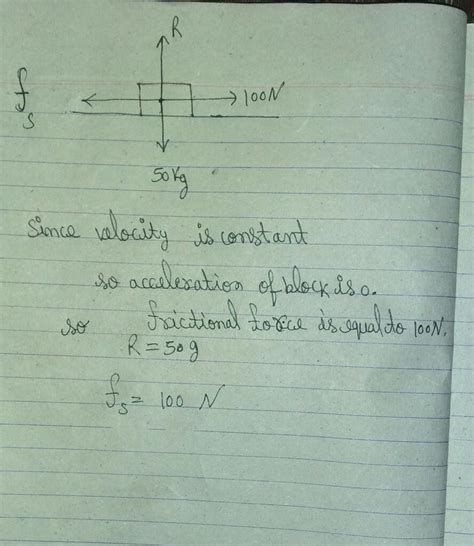 R
f
s
100N
50Kg
Since velocity is constant
so acceleration of block is 0.
so frictional force is equal to 100N.
R = 50g
fs = 100 N